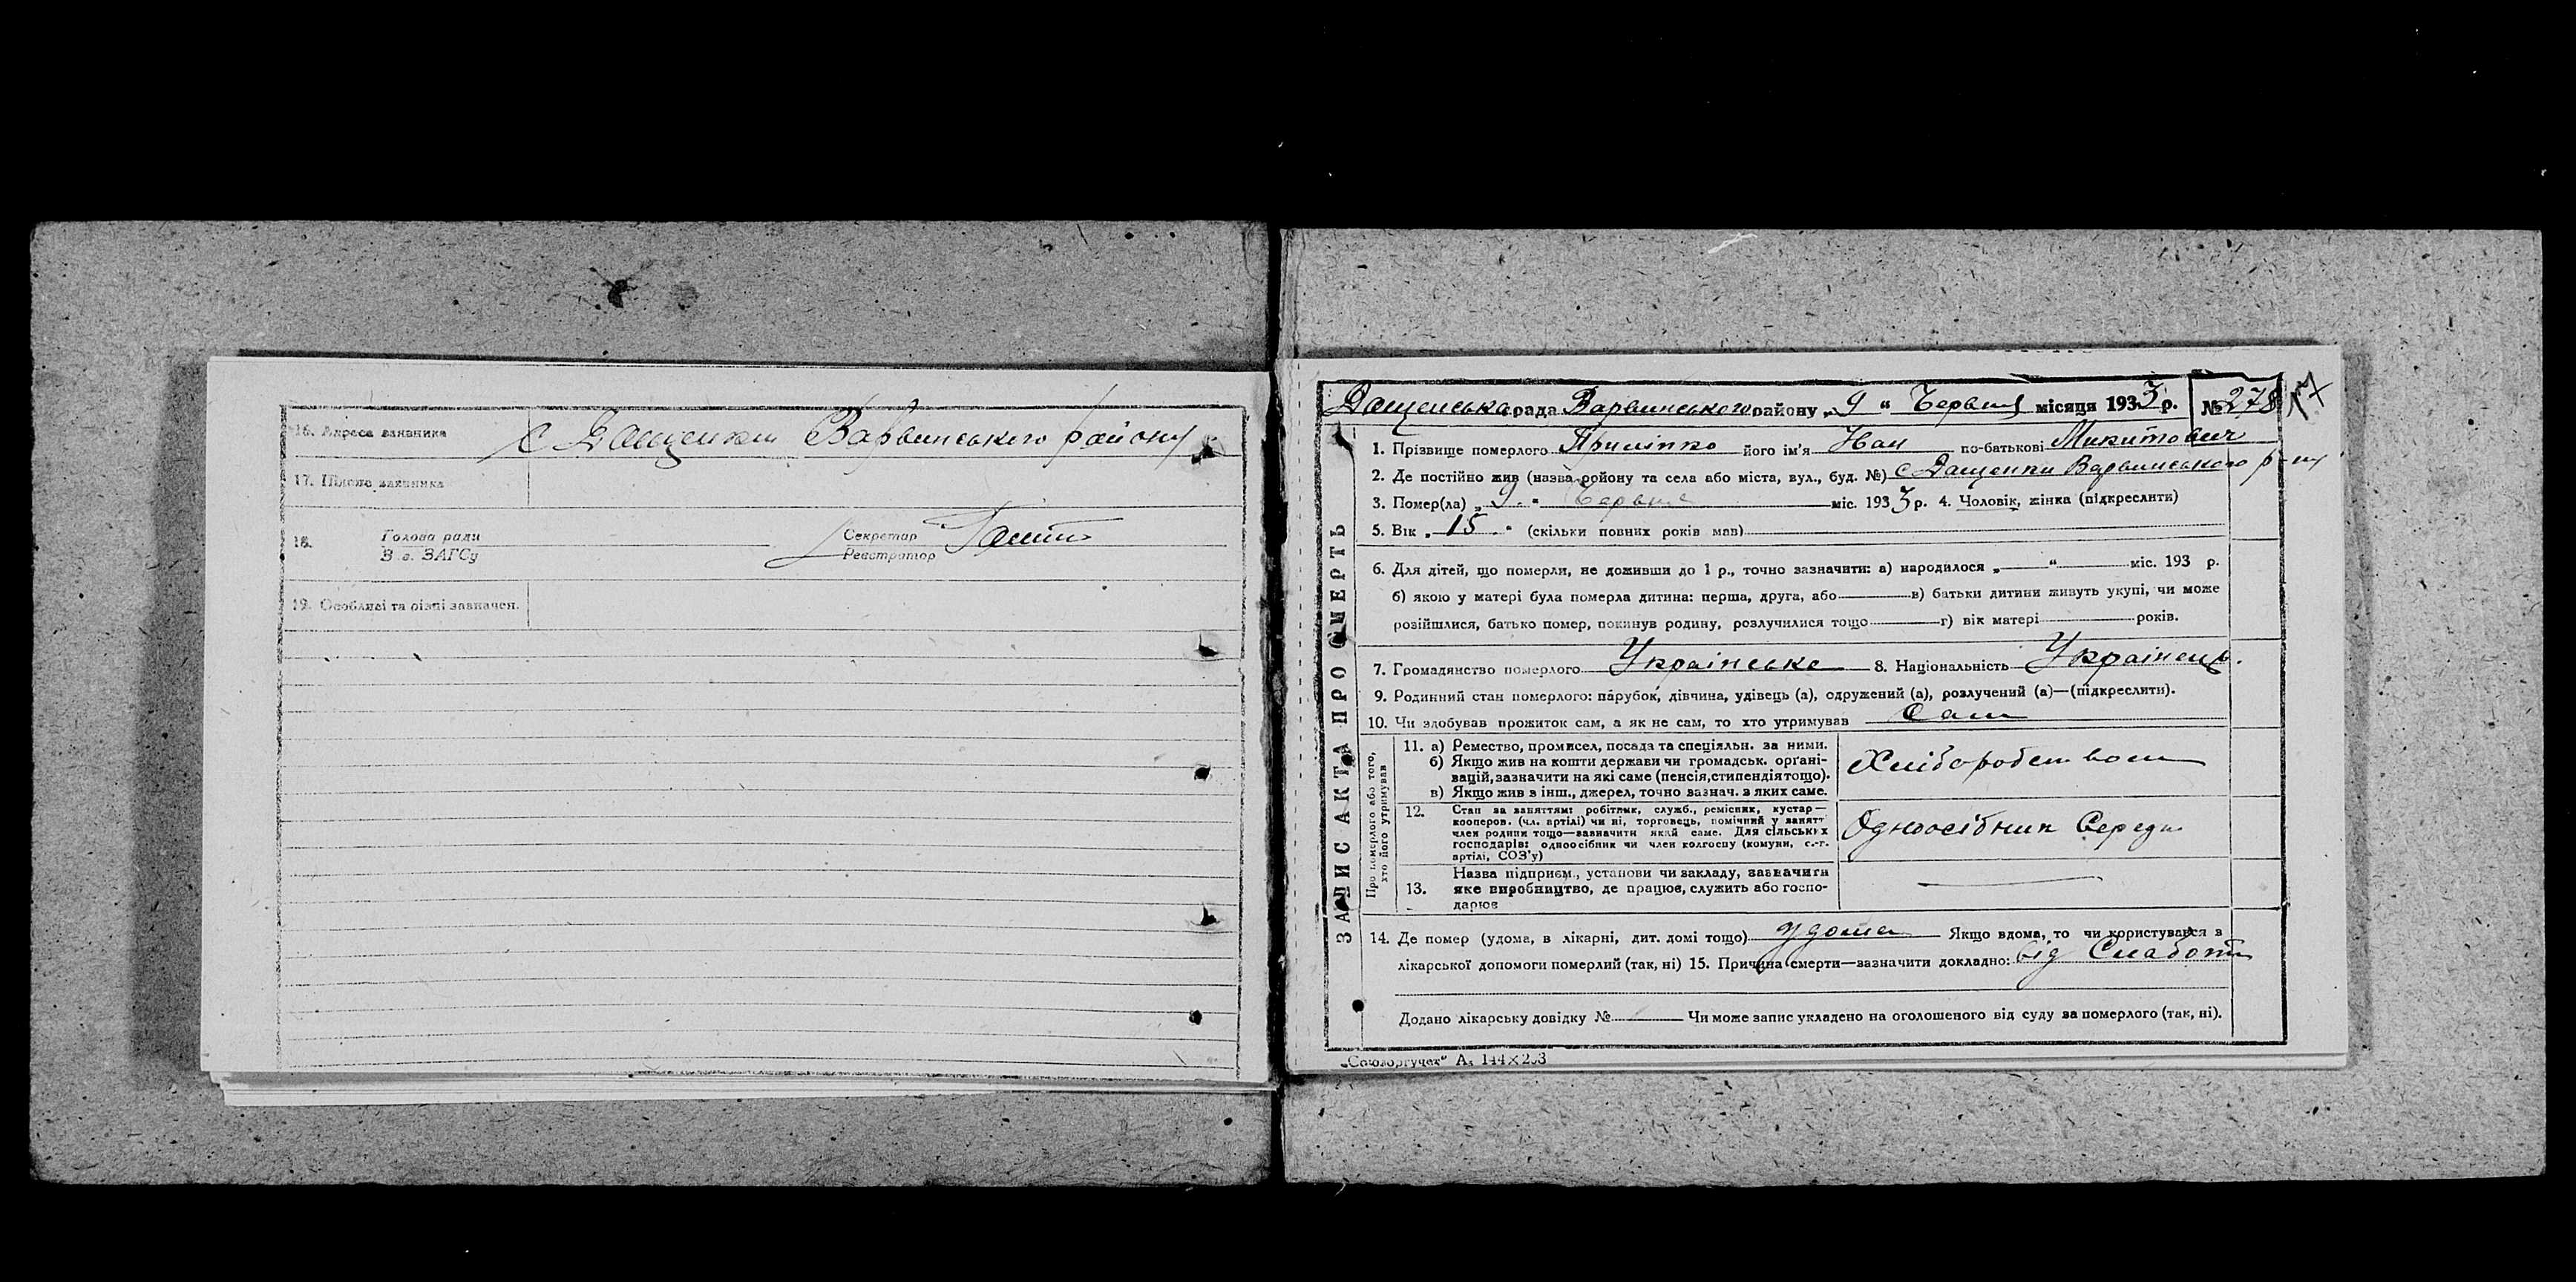 16. Адреса заявника с Дащенки Варвинського району
17. Підпис заявника
18. Голова ради
З. в. ЗАГСу
Секретар
Реєстратор
19. Особливі та різні зазначен.
ЗАПИС АКТА ПРО СМЕРТЬ
Дащенська рада Варвинського району „9“ Червня місяця 1933 р. № 278
1. Прізвище померлого Приліпко його ім'я Іван по-батькові Микитович
2. Де постійно жив (назва району та села або міста, вул., буд. №) с Дащенки Варвинського р-ну
3. Помер(ла) „9“ Червня міс. 1933 р. 4. Чоловік, жінка (підкреслити)
5. Вік „15“ (скільки повних років мав)
6. Для дітей, що померли, не доживши до 1 р., точно зазначити: а) народилося „ “ міс. 193 р.
б) якою у матері була померла дитина: перша, друга, або в) батьки дитини живуть укупі, чи може
розійшлися, батько помер, покинув родину, розлучилися тощо г) вік матері років.
7. Громадянство померлого Українське 8. Національність Українець.
9. Родинний стан померлого: парубок, дівчина, удівець (а), одружений (а), розлучений (а)—(підкреслити).
10. Чи здобував прожиток сам, а як не сам, то хто утримував Сам
Про померлого або того,
хто його утримував
11. а) Ремество, промисел, посада та спеціяльн. за ними.
б) Якщо жив на кошти держави чи громадськ. органі-
вацій, зазначити на які саме (пенсія, стипендія тощо).
в) Якщо жив з інш., джерел, точно зазнач. з яких саме.
Хліборобством
12. Стан за заняттям: робітник, служб., ремісник, кустар—
кооперов. (чл. артілі) чи ні, торговець, помічний у занятт
член родини тощо—зазначити який саме. Для сільських
господарів: одноосібник чи член колгоспу (комуни, с.-г.
артілі, СОЗ'у)
Одноосібник Середн
13. Назва підприєм., установи чи закладу, зазначити
яке виробництво, де працює, служить або госпо-
дарює
14. Де помер (удома, в лікарні, дит. домі тощо) удома Якщо вдома, то чи користувався в
лікарської допомоги померлий (так, ні) 15. Причина смерти—зазначити докладно: від Слаботи
Додано лікарську довідку № Чи може запис укладено на оголошеного від суду за померлого (так, ні).
„Союзоргучет“ А₅ 144×203